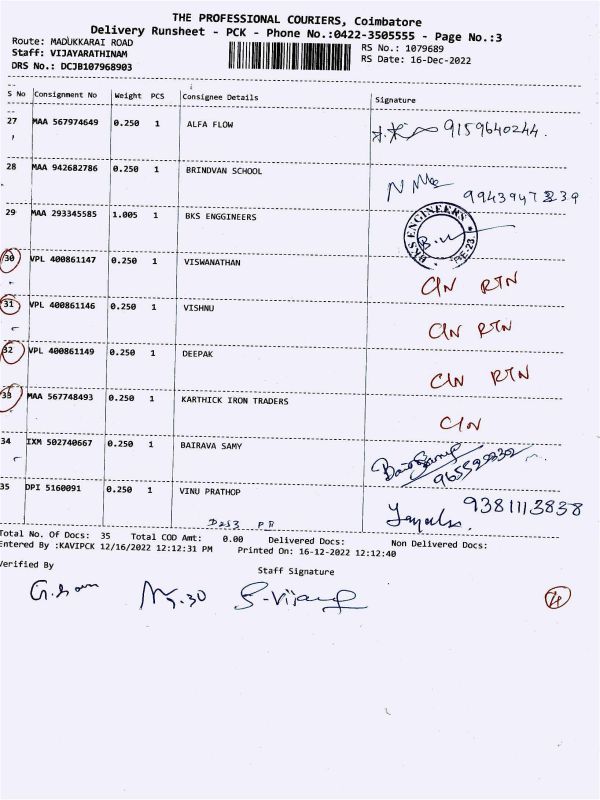 THE PROFESSIONAL COURIERS, Coimbatore
Delivery Runsheet - PCK - Phone No.:0422-3505555 - Page No.:3
Route: MADUKKARAI ROAD
RS No.: 1079689
Staff: VIJAYARATHINAM
RS Date: 16-Dec-2022
DRS No.: DCJB107968903
S No Consignment No Weight PCS Consignee Details Signature
27 MAA 567974649 0.250 1 ALFA FLOW 9159640244
28 MAA 942682786 0.250 1 BRINDVAN SCHOOL
29 MAA 293345585 1.005 1 BKS ENGGINEERS BKS ENGINEERS
30 VPL 400861147 0.250 1 VISWANATHAN C/N RTN
31 VPL 400861146 0.250 1 VISHNU C/N RTN
32 VPL 400861149 0.250 1 DEEPAK C/N RTN
33 MAA 567748493 0.250 1 KARTHICK IRON TRADERS C/N
34 IXM 502740667 0.250 1 BAIRAVA SAMY
35 DPI 5160091 0.250 1 VINU PRATHOP 9381113838
Total No. Of Docs: 35 Total COD Amt: 0.00 Delivered Docs: Non Delivered Docs:
Entered By :KAVIPCK 12/16/2022 12:12:31 PM Printed On: 16-12-2022 12:12:40
Verified By
Staff Signature